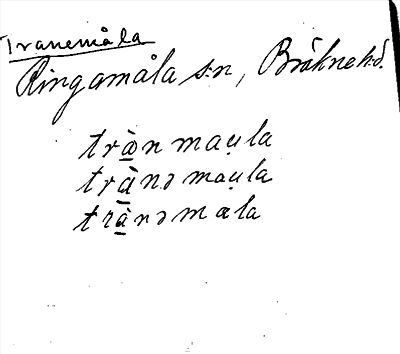 Tranemåla
Ringamåla s:n, Bräkne hd.
trà̱n mau̯la
trà̱nə mau̯la
trà̱nə mala